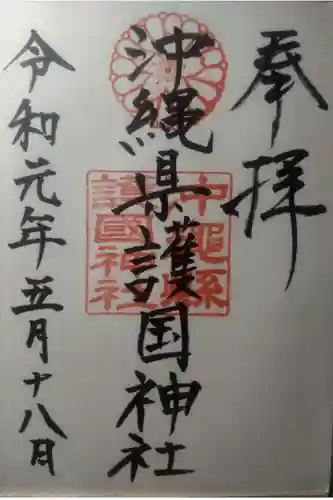 奉拝
沖縄県護国神社
令和元年五月十八日
護國神社